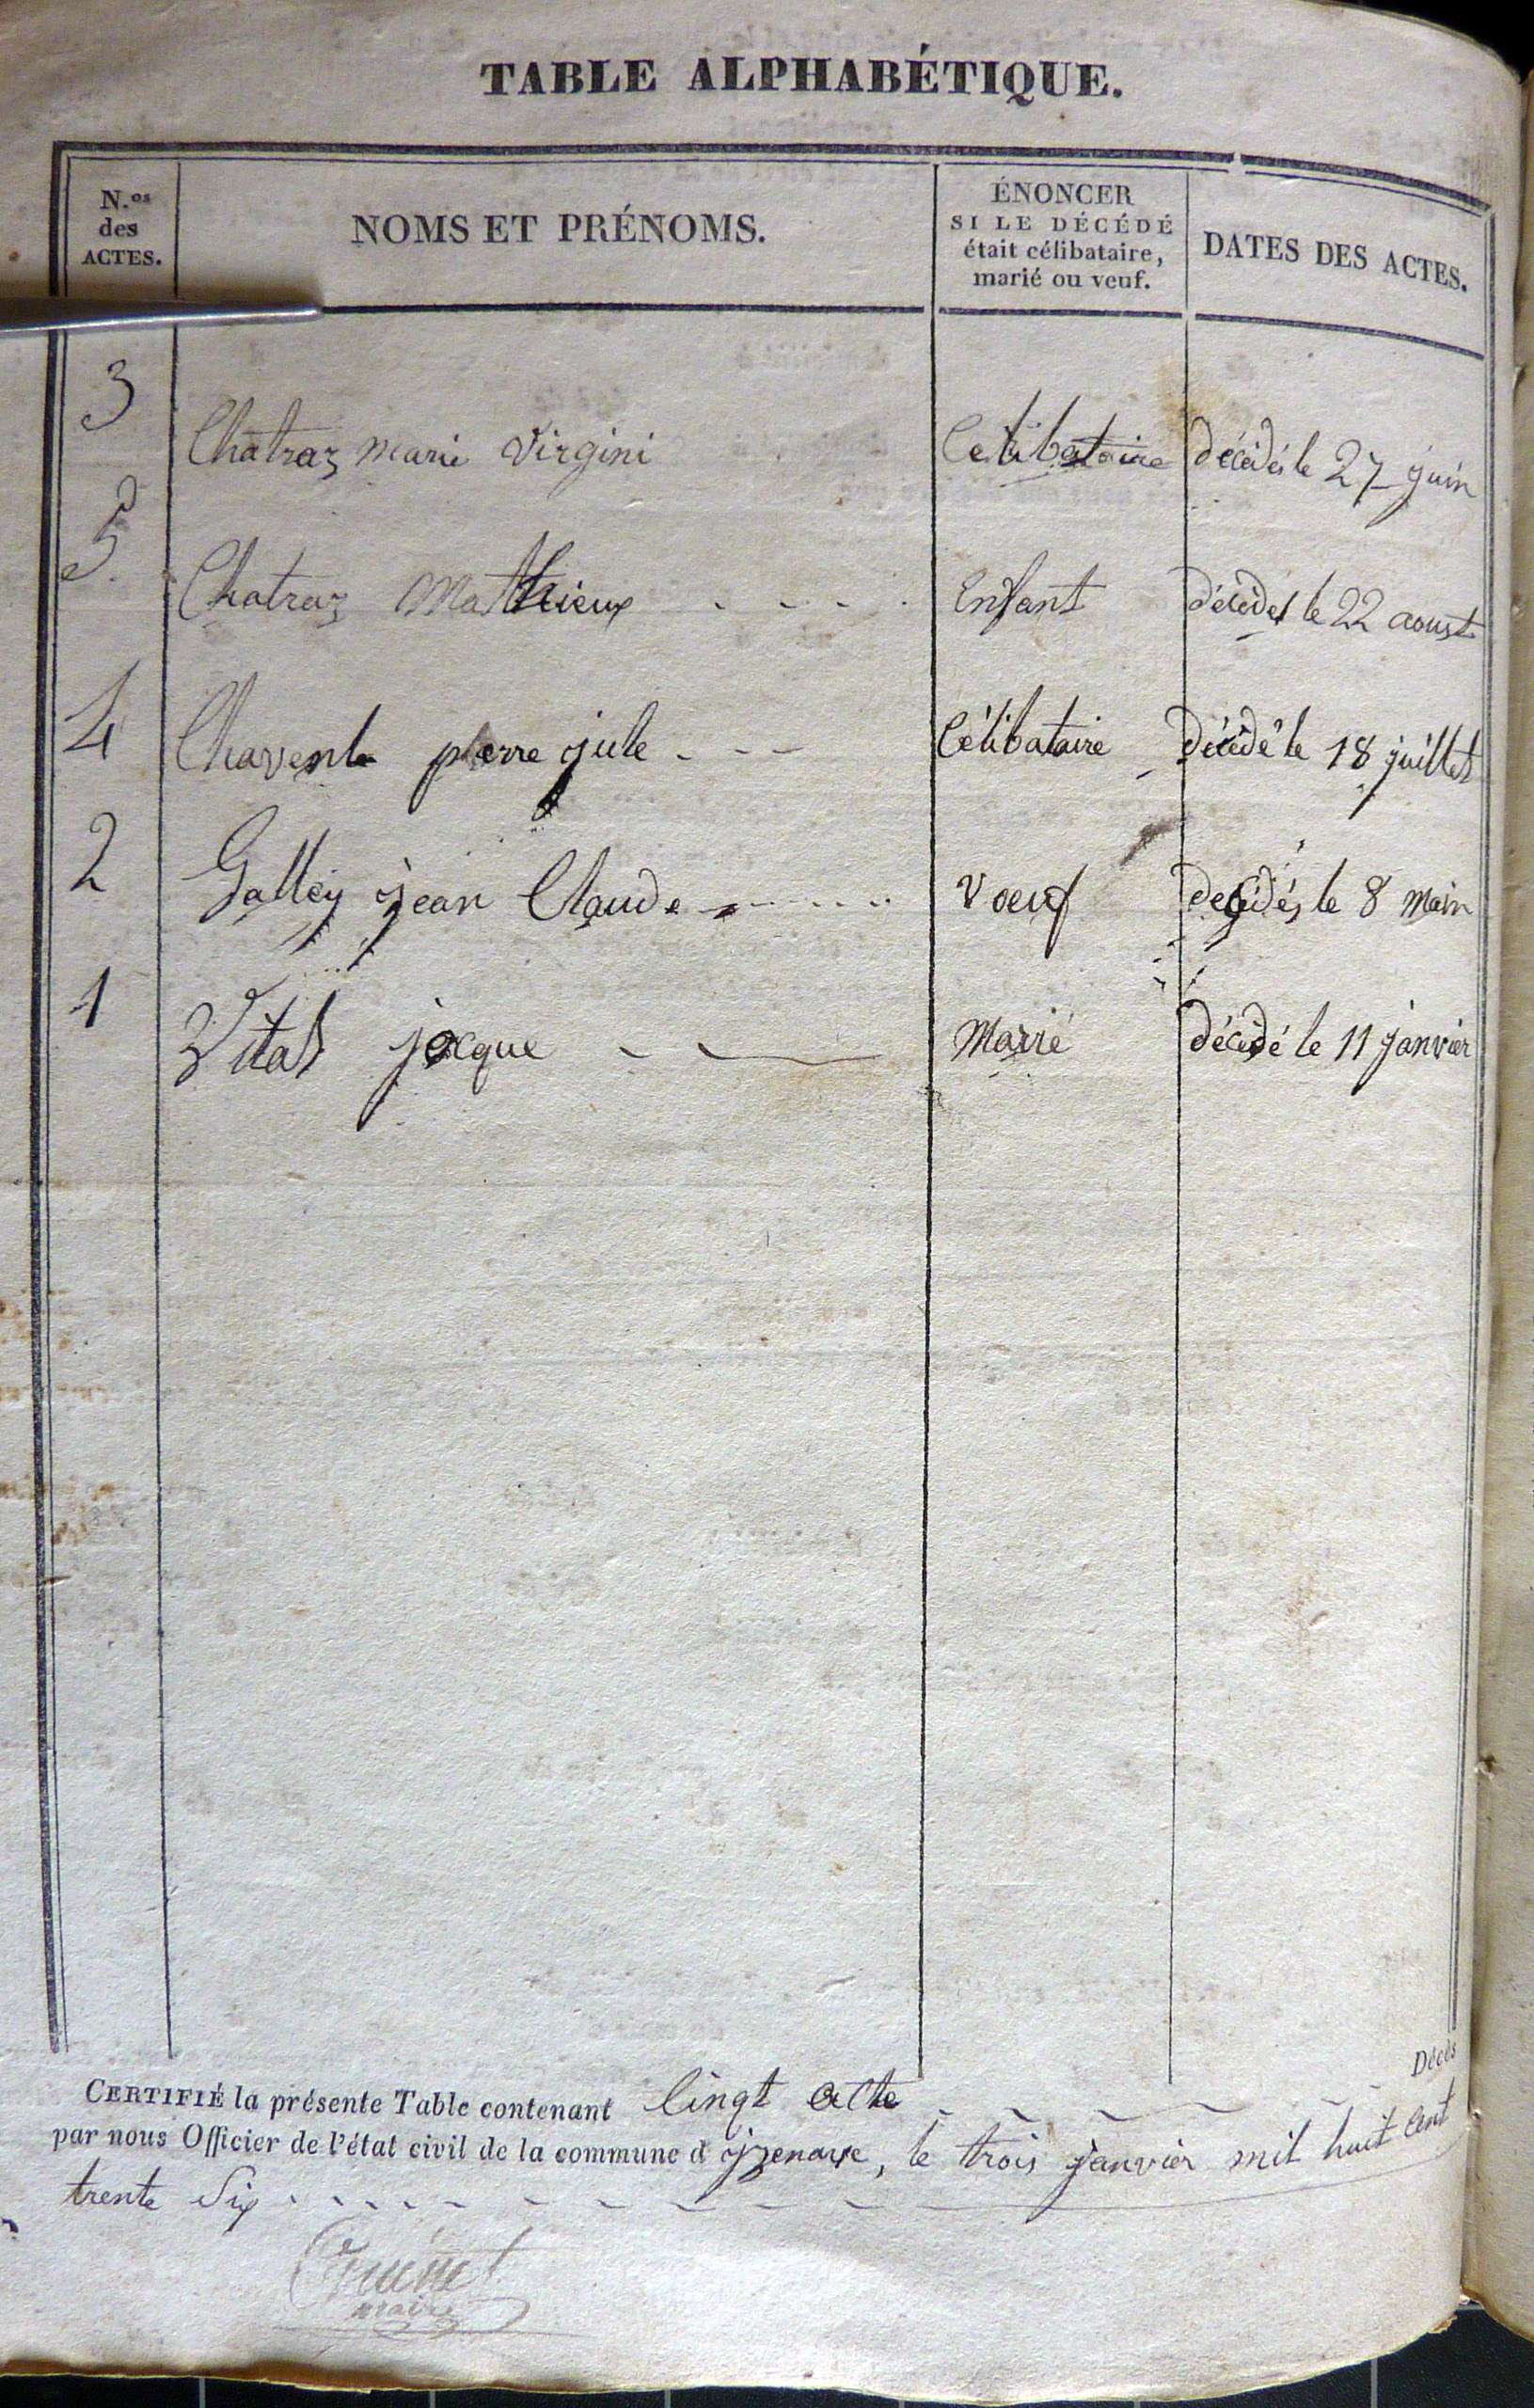 TABLE ALPHABÉTIQUE.
N.os des ACTES.
NOMS ET PRÉNOMS.
ÉNONCER
SI LE DÉCÉDÉ
était célibataire,
marié ou veuf.
DATES DES ACTES.
3 Chatraz marie Virgini Célibataire décédés le 27 juin
5 Chatraz Mathieux Enfant décédés le 22 aoust
4 pierre jule Célibataire décédé le 18 juillet
2 Galley jean Claude voeuf decédés le 8 main
1 Vital jacque Marié décédé le 11 janvier
Décès
CERTIFIÉ la présente Table contenant Cinqt acte
par nous Officier de l'état civil de la commune d jzenave, le trois janvier mil huit Cent
trente Six
maire